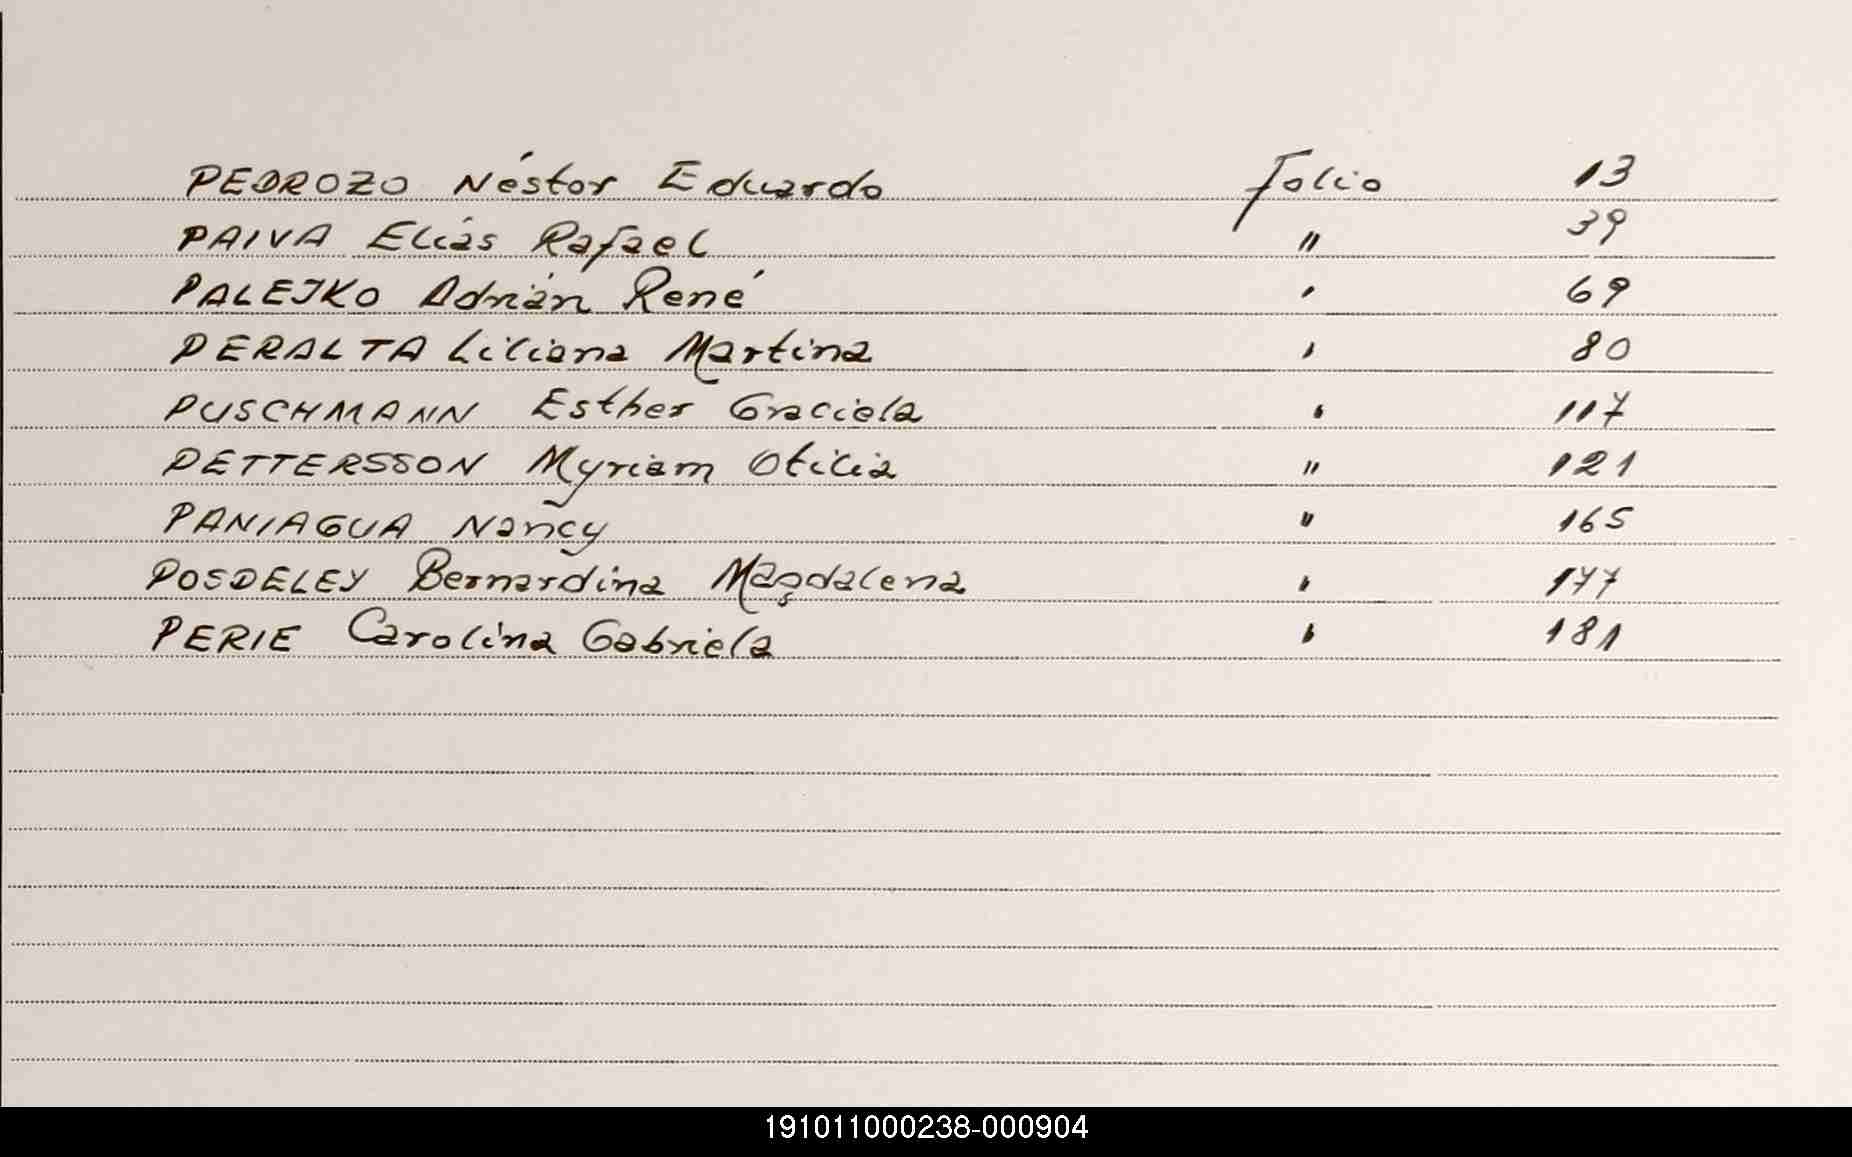 PEDROZO Néstor Eduardo Folio 13
PAIVA Elías Rafael " 39
PALEJKO Adrián René ' 69
PERALTA Liliana Martina ' 80
PUSCHMANN Esther Graciela ' 117
PETTERSSON Myriam Otilia " 121
PANIAGUA Nancy " 165
POSDELEY Bernardina Magdalena ' 177
PERIE Carolina Gabriela ' 181
191011000238-000904